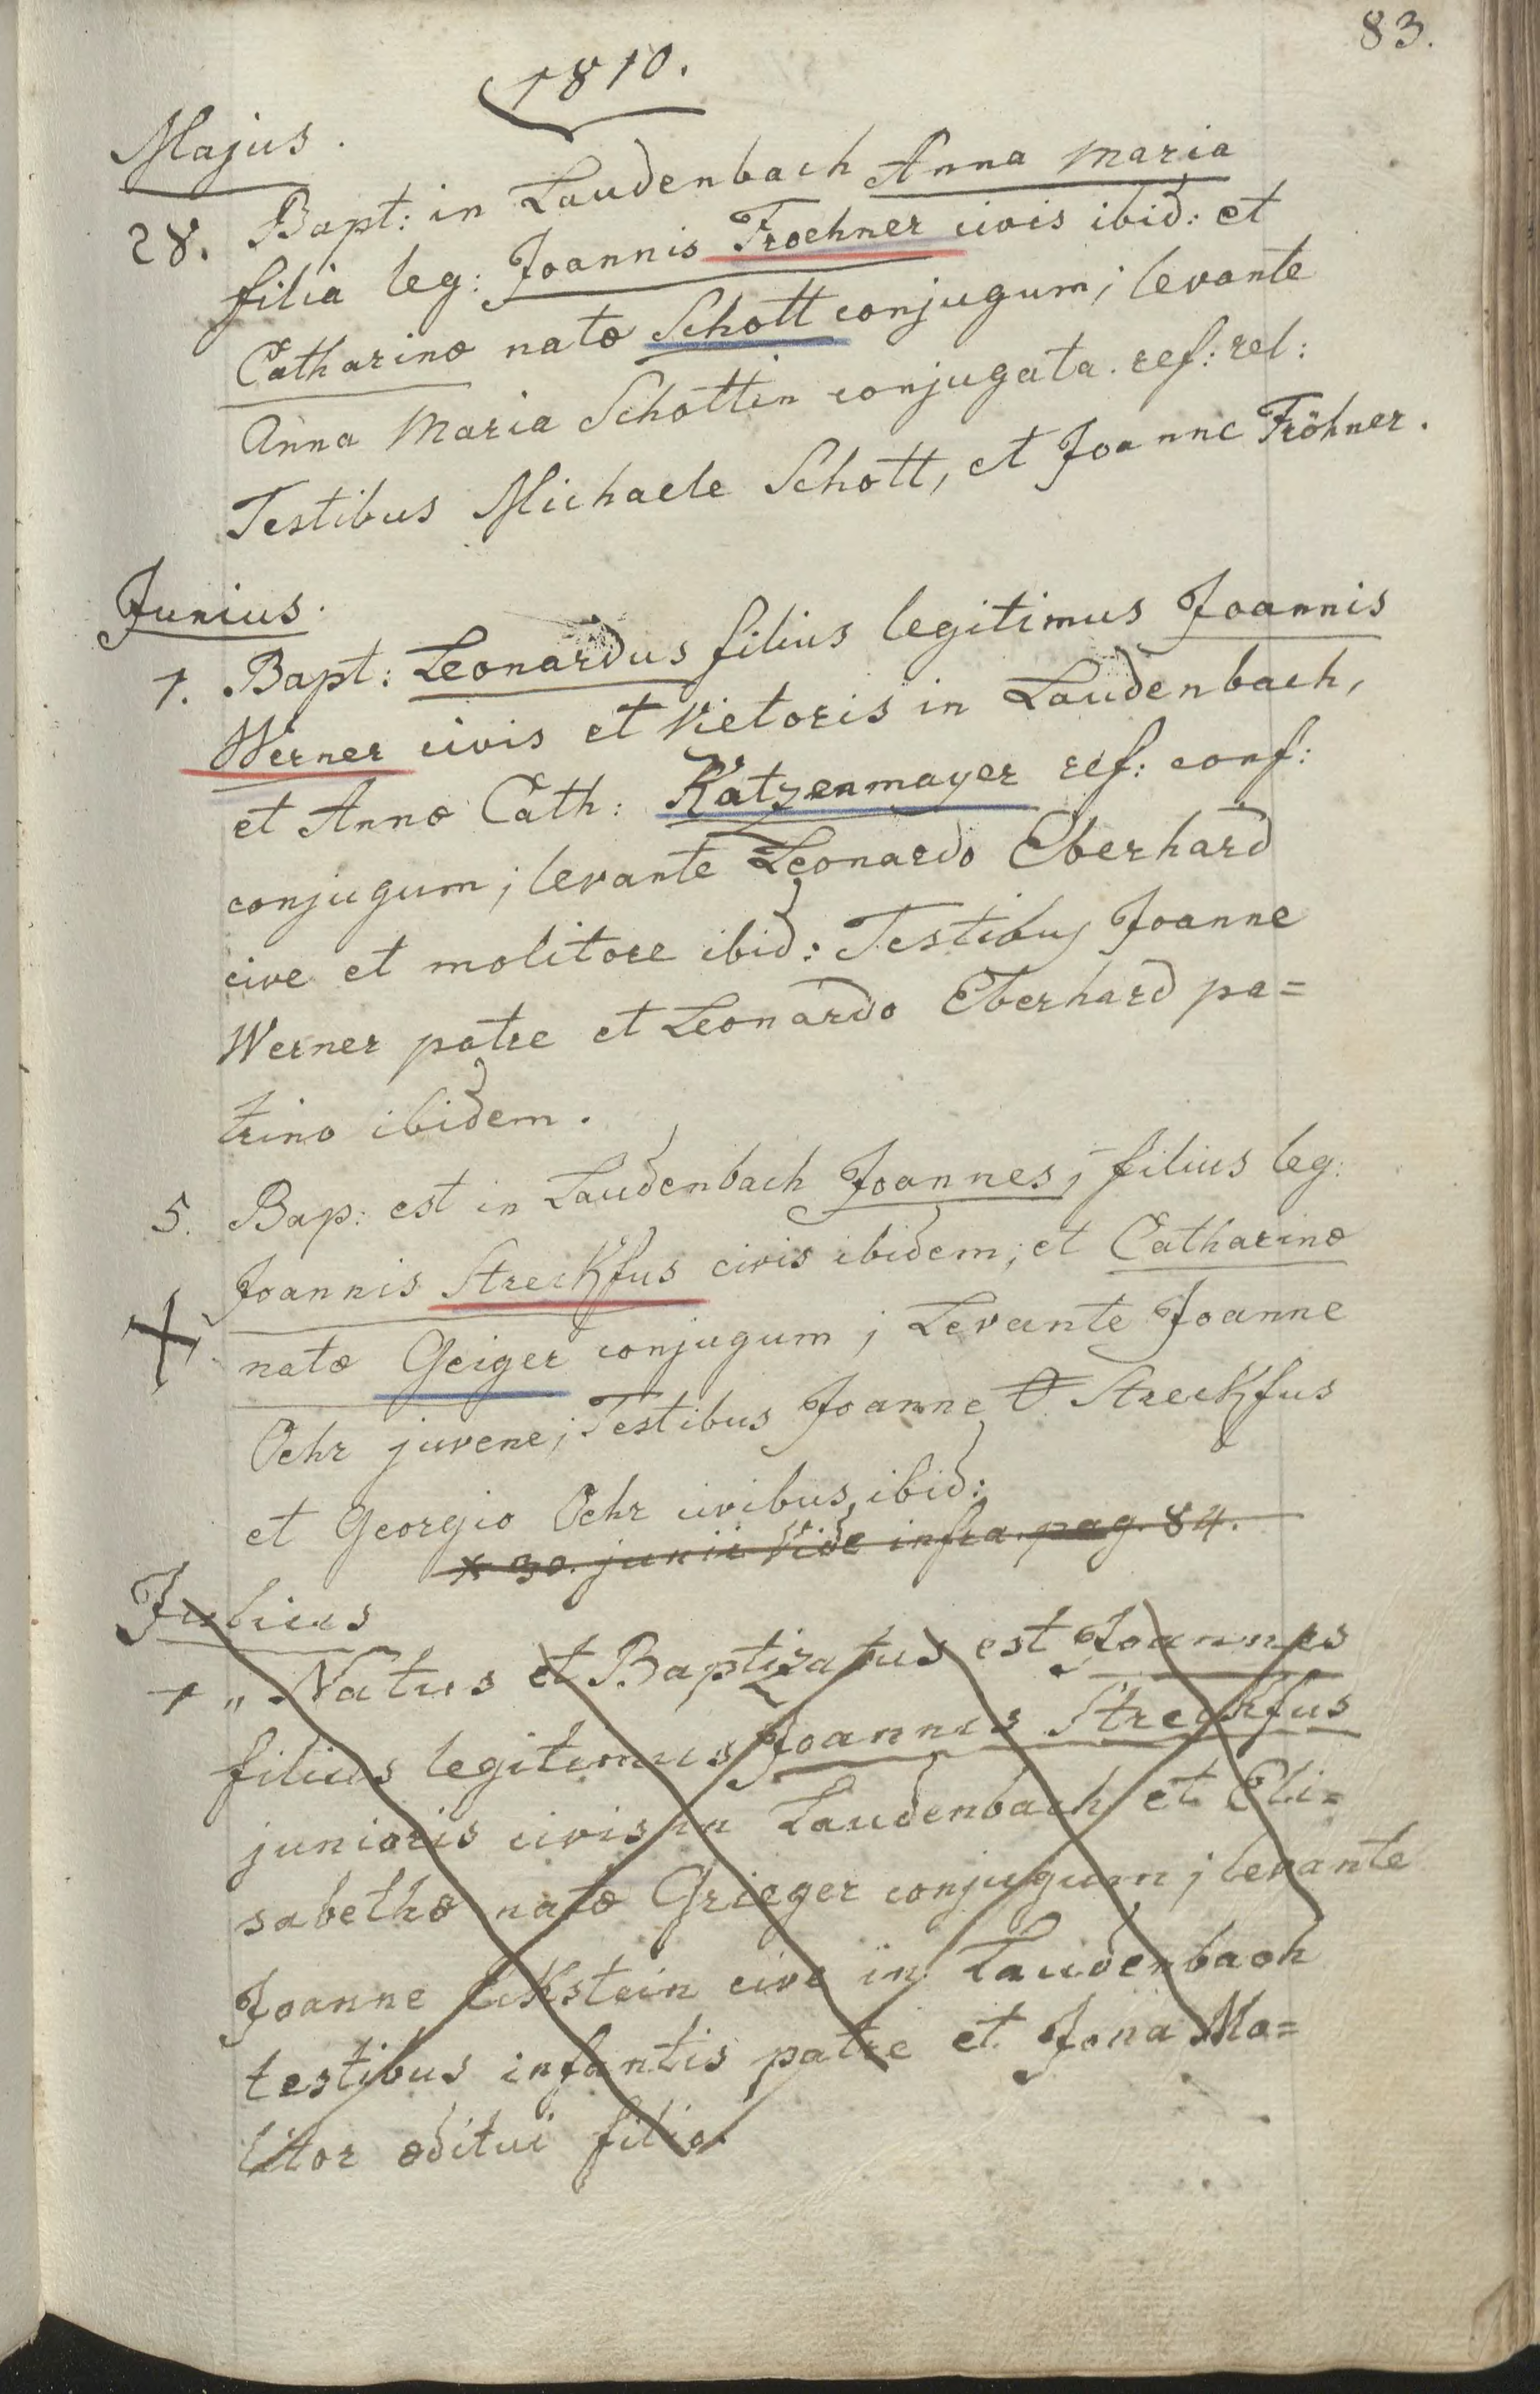 83.
1810.
Majus.
28. Bapt: in Laudenbach Anna Maria
filia leg: Joannis Froehner civis ibid: et
Catharinæ natæ Schott conjugum; levante
Anna Maria Schottin conjugata. ref: rel:
Testibus Michaele Schott, et Joanne Fröhner.
Junius.
1. Bapt: Leonardus filius legitimus Joannis
Werner civis et Vietoris in Laudenbach,
et Annæ Cath: Katzenmayer ref: conf:
conjugum; levante Leonardo Eberhard
cive et molitore ibid: Testibus Joanne
Werner patre et Leonardo Eberhard pa=
trino ibidem.
5. Bap: est in Laudenbach Joannes, filius leg:
Joannis Streckfus civis ibidem; et Catharinæ
X natæ Geiger conjugum; Levante Joanne
Oehr juvene; Testibus Joanne Streckfus
et Georgio Oehr civibus ibid:
x 30. junii Vide infra pag. 84.
Julius
1 " Natus et Baptizatus est Joannes
filius legitimus Joannis Streckfus
junioris civis in Laudenbach et Eli=
sabethæ natæ Grieger conjugum; levante
Joanne Eckstein cive in Laudenbach
testibus infantis patre et Jona Mo=
litor æditui filio.